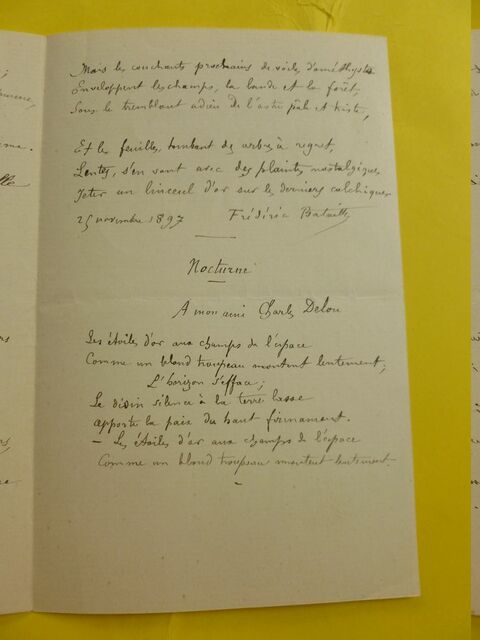 Mais les couchants prochains de voiles d'améthystes
Enveloppent les champs, la lande et la forêt,
Sous le tremblant adieu de l'astre pâle et triste,
Et les feuilles, tombant des arbres à regret,
Lentes, s'en vont avec des plaintes nostalgiques
Jeter un linceul d'or sur les derniers colchiques.
25 novembre 1897 Frédéric Bataille
Nocturne
A mon ami Charles Delon
Les étoiles d'or aux champs de l'espace
Comme un blond troupeau montent lentement;
L'horizon s'efface;
Le divin silence à la terre lasse
apporte la paix du haut firmament.
— Les étoiles d'or aux champs de l'espace
Comme un blond troupeau montent lentement.